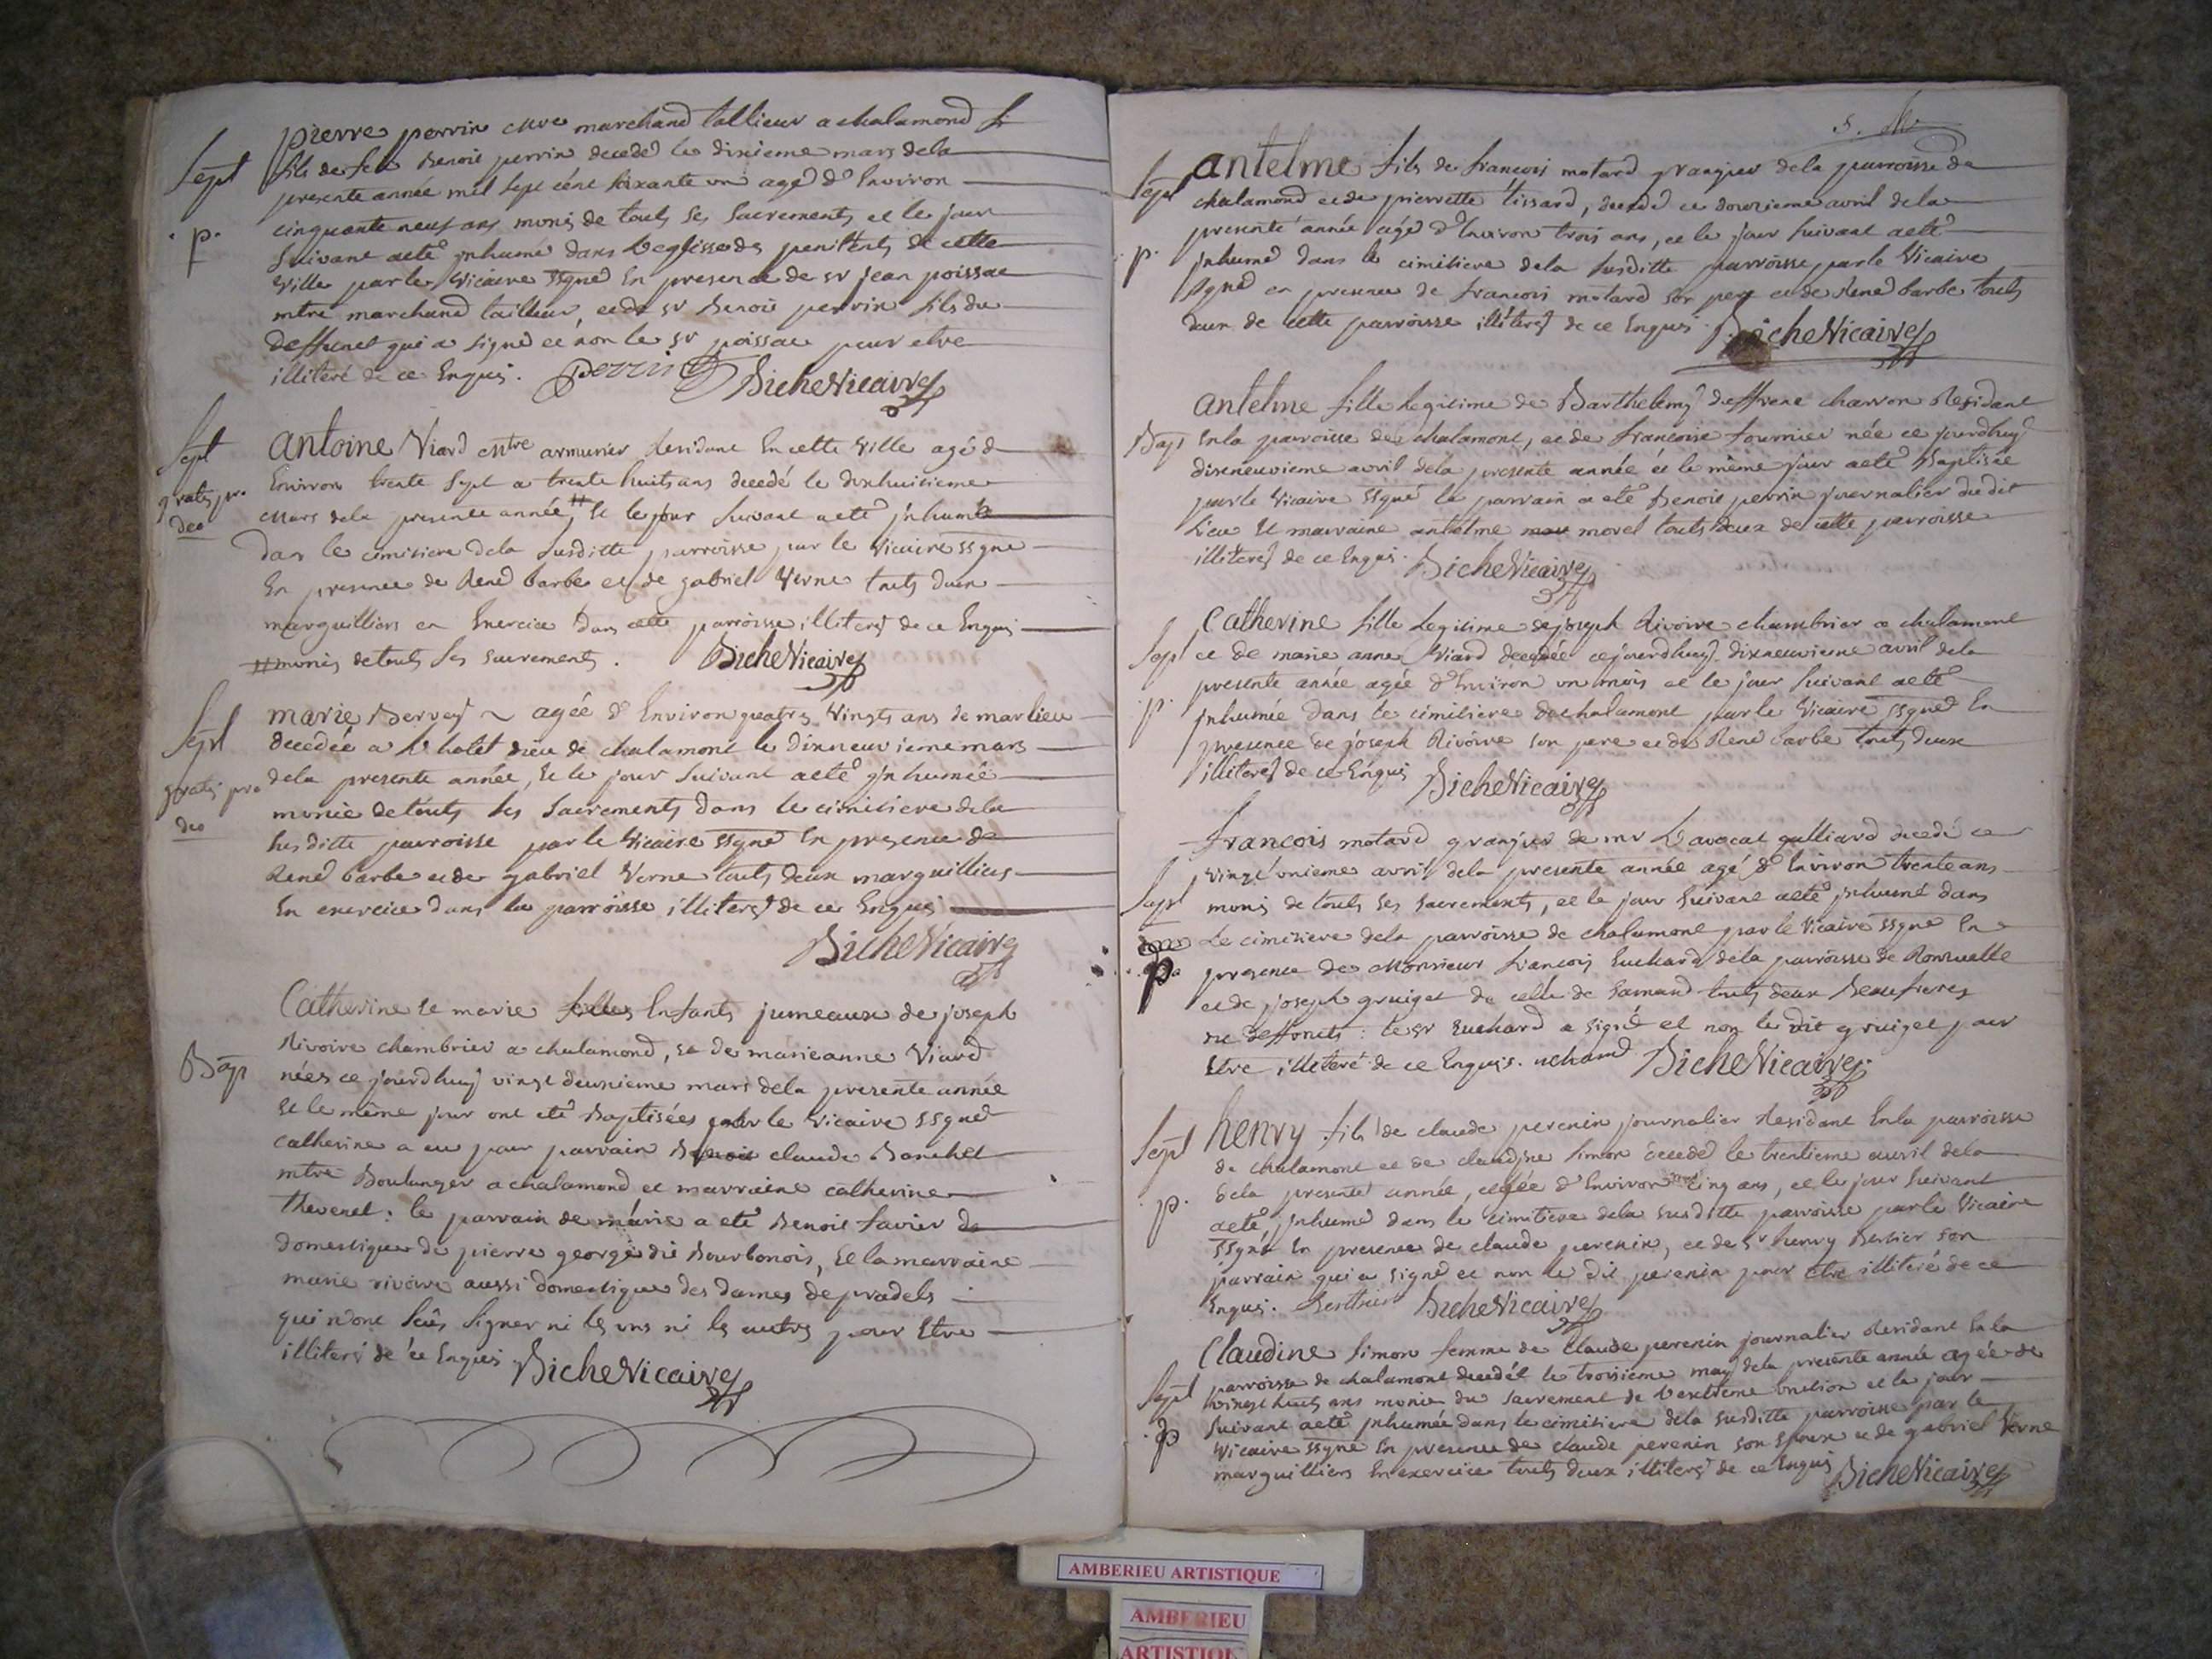 pierre perrin mtre marchand tallieur a chalamond
Sept
fils de feu Benoit perrin decedé le dixieme mars dela
presente année mil sept cent soixante un agé d'Environ
cinquante neuf ans munis de touts ses sacrements et le jour
p.
suivant aeté jnhumé dans l'eglisse des penittents de cette
ville par le vicaire ssgné En presence de sr jean poissac
mtre marchand tailleur, et de sr Benoit perrin fils du
deffunct qui a signé et non le sr poissac pour etre
illiteré de ce Enquis. perrin BicheVicaire
Sept
antoine Viard mtre armurier Residant En cette ville agé d
Environ trente sept a trente huits ans decedé le dixhuitieme
gratis pro
deo
mars dela presente année, # Et le jour suivant aeté jnhumé
dan le cimitiere dela susditte parroisse par le vicaire ssgné
En presence de René barbe et de gabriel Verne touts deux
marguilliers en Exercice dans cette parroisse illiterés de ce Enquis
# munis de touts ses sacrements. BicheVicaire
Sept
marie Bervey ~ agée d'Environ quatres vingts ans de marlieu
decedée a L'hotel dieu de chalamont le dixneuvieme mars
gratis pro
deo
dela presente année, Et le jour suivant aeté jnhumée
munie de touts ses sacrements dans le cimitiere dela
susditte parroisse par le vicaire ssgné En presence de
René barbe et de gabriel Verne touts deux marguilliers
En exercice dans la parroisse illiterés de ce Enquis
BicheVicaire
Catherine et marie Enfants jumeaux de joseph
Bap
Rivoire chambrier a chalamond, et de marieanne Viard
nées ce jourdhuy vingt deuxieme mars dela presente année
Et le même jour ont eté Baptisées par le vicaire ssgné
catherine a eu pour parrain claude Banchet
mtre Boulanger a chalamond et marraine catherine
thevenet : le parrain de marie a eté Benoit favier
domestique de pierre george dit Bourbonois, Et la marraine
marie rivoire aussi domestique des dames depradels
qui n'ont seûs signer ni les uns ni les autres pour Etre
illiterés de ce Enquis BicheVicaire
5.
Sept
antelme fils de francois motard granjier dela parroisse de
chalamond et de pierrette tissard, decedé ce douzieme avril dela
presente année agé d'Environ trois ans, et le jour suivant aeté
p.
jnhumé dans le cimitiere dela susditte parroisse par le Vicaire
sgné en presence de francois motard son pere et de René barbe touts
deux de cette parroisse illiterés de ce Enquis BicheVicaire
antelme fille legitime de Barthelemy deffrene charron Residant
Bap
En la parroisse de chalamont, et de francoise fournier née ce jourdhuy
dixneuvieme avril dela presente année et le même jour aeté Baptisée
par le Vicaire ssgné le parrain a eté Benoit perrin journalier dudit
Lieu Et marraine antelme morel touts deux de cette parroisse
illiterés de ce Enquis. BicheVicaire
Catherine fille legitime de joseph Rivoire chambrier a chalamont
Sept
et de marie anne Viard decedée cejourdhuy dixneuvieme avril dela
presente année agée d'Environ un mois et le jour suivant aeté
p.
jnhumée dans le cimitiere de chalamont par le Vicaire ssgné En
presence de joseph Rivoire son pere et de René barbe touts deux
illiterés de ce Enquis BicheVicaire
francois motard granjier de mr L'avocat gulliard decedé ce
vingt unieme avril dela presente année agé d'Environ trente ans
Sept
munis de touts ses sacrements, et le jour suivant aeté jnhumé dans
Le cimitiere dela parroisse de chalamont par le Vicaire ssgné En
p.
presence de Monsieur francois Euchard dela parroisse de Ronzuelle
et de joseph gruiget de celle de samand touts deux Beaufreres
du deffuncts : le sr Euchard a signé et non le dit gruiget pour
Etre illiteré de ce Enquis. BicheVicaire
Sept
henry fils de claude perenin journalier Residant En la parroisse
de chalamont et de claudine simon decedé le trentieme avril dela
dela presente année, agée d'Environ cinq ans, et le jour suivant
p.
aeté jnhumé dans le cimitiere dela susditte parroisse par le Vicaire
ssgné En presence de claude perenin, et de sr henry Bertier son
parrain qui a signé et non le dit perenin pour etre illiteré de ce
Enquis. Berthier BicheVicaire
Claudine simon femme de claude perenin journalier Residant En la
Sept
parroisse de chalamont decedée le troisieme may dela presente année agée de
vingt huit ans munie du sacrement de l'extreme onction et le jour
p
suivant aeté jnhumée dans le cimitiere dela susditte parroisse par le
Vicaire ssgné En presence de claude perenin son epoux et de gabriel Verne
marguilliers En exercice touts deux illiterés de ce Enquis BicheVicaire
AMBERIEU ARTISTIQUE
AMBERIEU
ARTISTIQUE